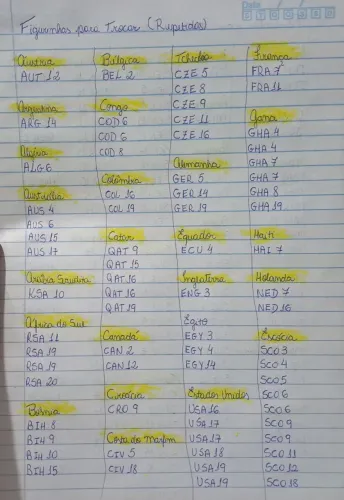 Figurinhas para Trocar (Repetidas)
Áustria
AUT 12
Argentina
ARG 14
Algéria
ALG 6
Austrália
AUS 4
AUS 6
AUS 15
AUS 17
Arábia Saudita
KSA 10
África do Sul
RSA 11
RSA 19
RSA 19
RSA 20
Bósnia
BIH 8
BIH 9
BIH 10
BIH 15
Bélgica
BEL 2
Congo
COD 6
COD 6
COD 8
Colômbia
COL 16
COL 19
Catar
QAT 9
QAT 15
QAT 16
QAT 16
QAT 19
Canadá
CAN 2
CAN 12
Croácia
CRO 9
Costa do Marfim
CIV 5
CIV 18
Tchéquia
CZE 5
CZE 8
CZE 9
CZE 11
CZE 16
Alemanha
GER 5
GER 14
GER 19
Equador
ECU 4
Inglaterra
ENG 3
Egito
EGY 3
EGY 4
EGY 14
Estados Unidos
USA 16
USA 17
USA 17
USA 18
USA 19
USA 19
França
FRA 7
FRA 11
Gana
GHA 4
GHA 4
GHA 7
GHA 7
GHA 8
GHA 19
Haiti
HAI 7
Holanda
NED 7
NED 16
Escócia
SCO 3
SCO 4
SCO 5
SCO 6
SCO 6
SCO 9
SCO 9
SCO 11
SCO 12
SCO 18